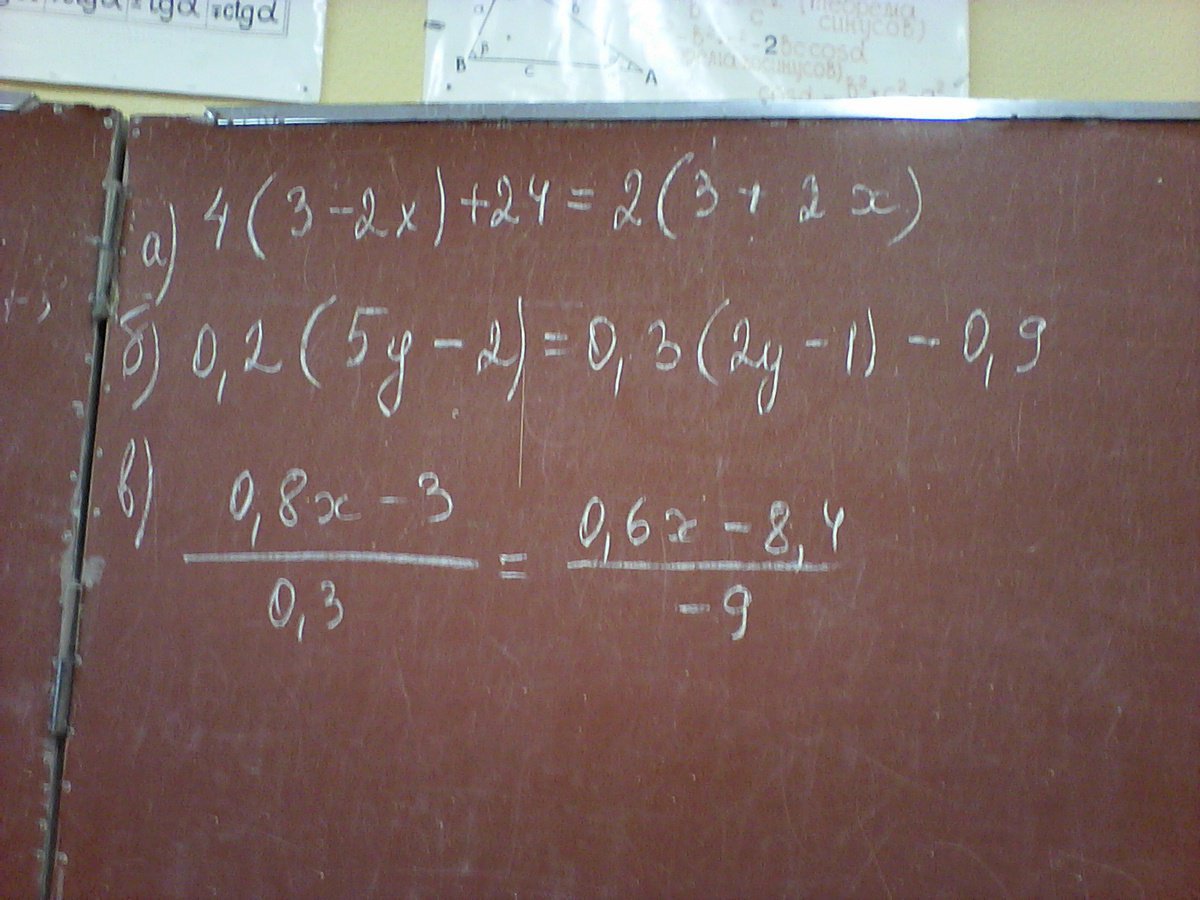 tgα
ctgα
a
b
B
β
c
A
(теорема
синусов)
2bccosα
косинусов)
а) 4(3-2x)+24=2(3+2x)
б) 0,2(5y-2)=0,3(2y-1)-0,9
в) 0,8x-3 = 0,6x-8,4
0,3 -9